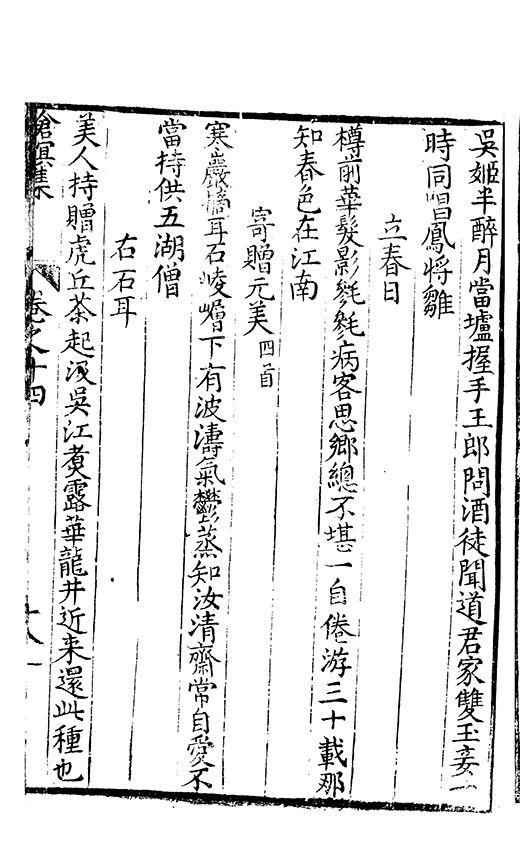 吳姬半醉月當壚握手王郎問酒徒聞道君家雙玉妾一
時同唱鳳將雛
立春日
樽前華髮影毿毿病客思鄉總不堪一自倦游三十載那
知春色在江南
寄贈元美四首
寒巖摘耳石崚嶒下有波濤氣鬱蒸知汝清齋常自愛不
當持供五湖僧
右石耳
美人持贈虎丘茶起汲吳江煮露華龍井近来還此種也
滄溟集 卷之十四 十八